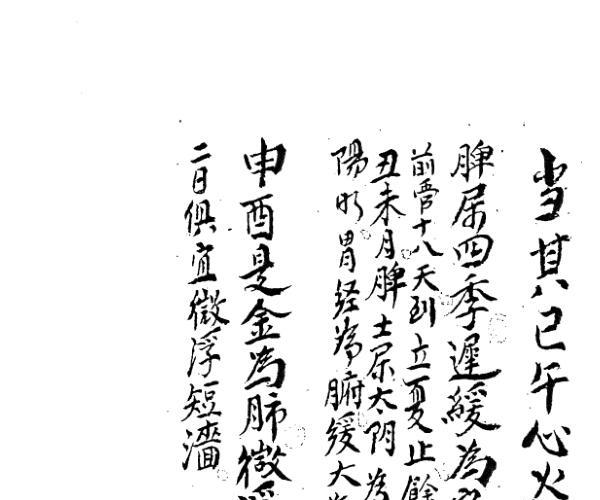 当其巳午心火
脾属四季遲緩為
前管十八天到立夏止餘
丑未月脾土属太阴為
陽明胃经為腑緩大
申酉是金為肺微浮
二日俱宜微浮短濇